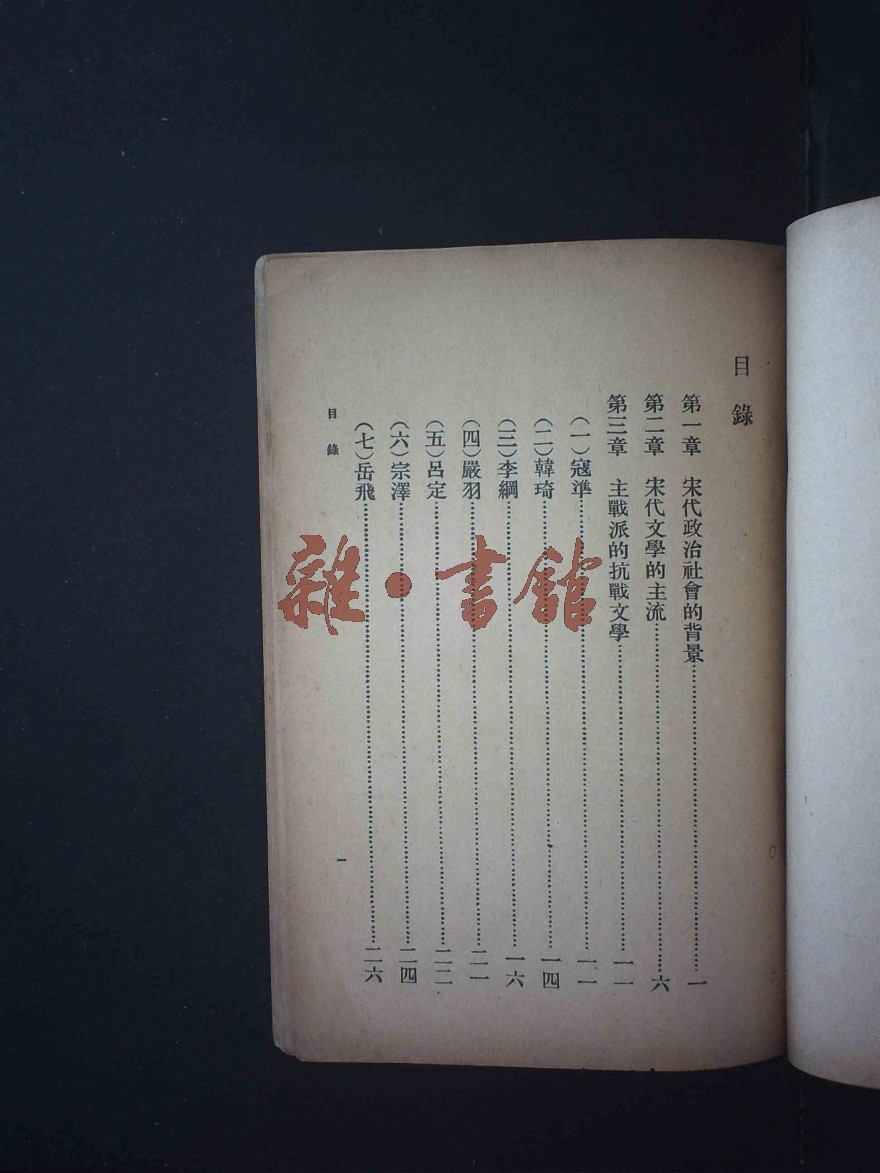 目錄
第一章　宋代政治社會的背景…………一
第二章　宋代文學的主流…………六
第三章　主戰派的抗戰文學…………一一
（一）寇準…………一一
（二）韓琦…………一四
（三）李綱…………一六
（四）嚴羽…………二一
（五）呂定…………二二
（六）宗澤…………二四
（七）岳飛…………二六
目錄
一
雜·書館